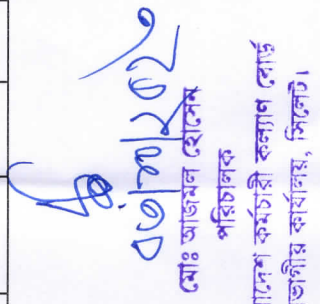 মোঃ আজমল হোসেন
পরিচালক
াদেশ কর্মচারী কল্যাণ বোর্ড
ভাগীয় কার্যালয়, সিলেট।